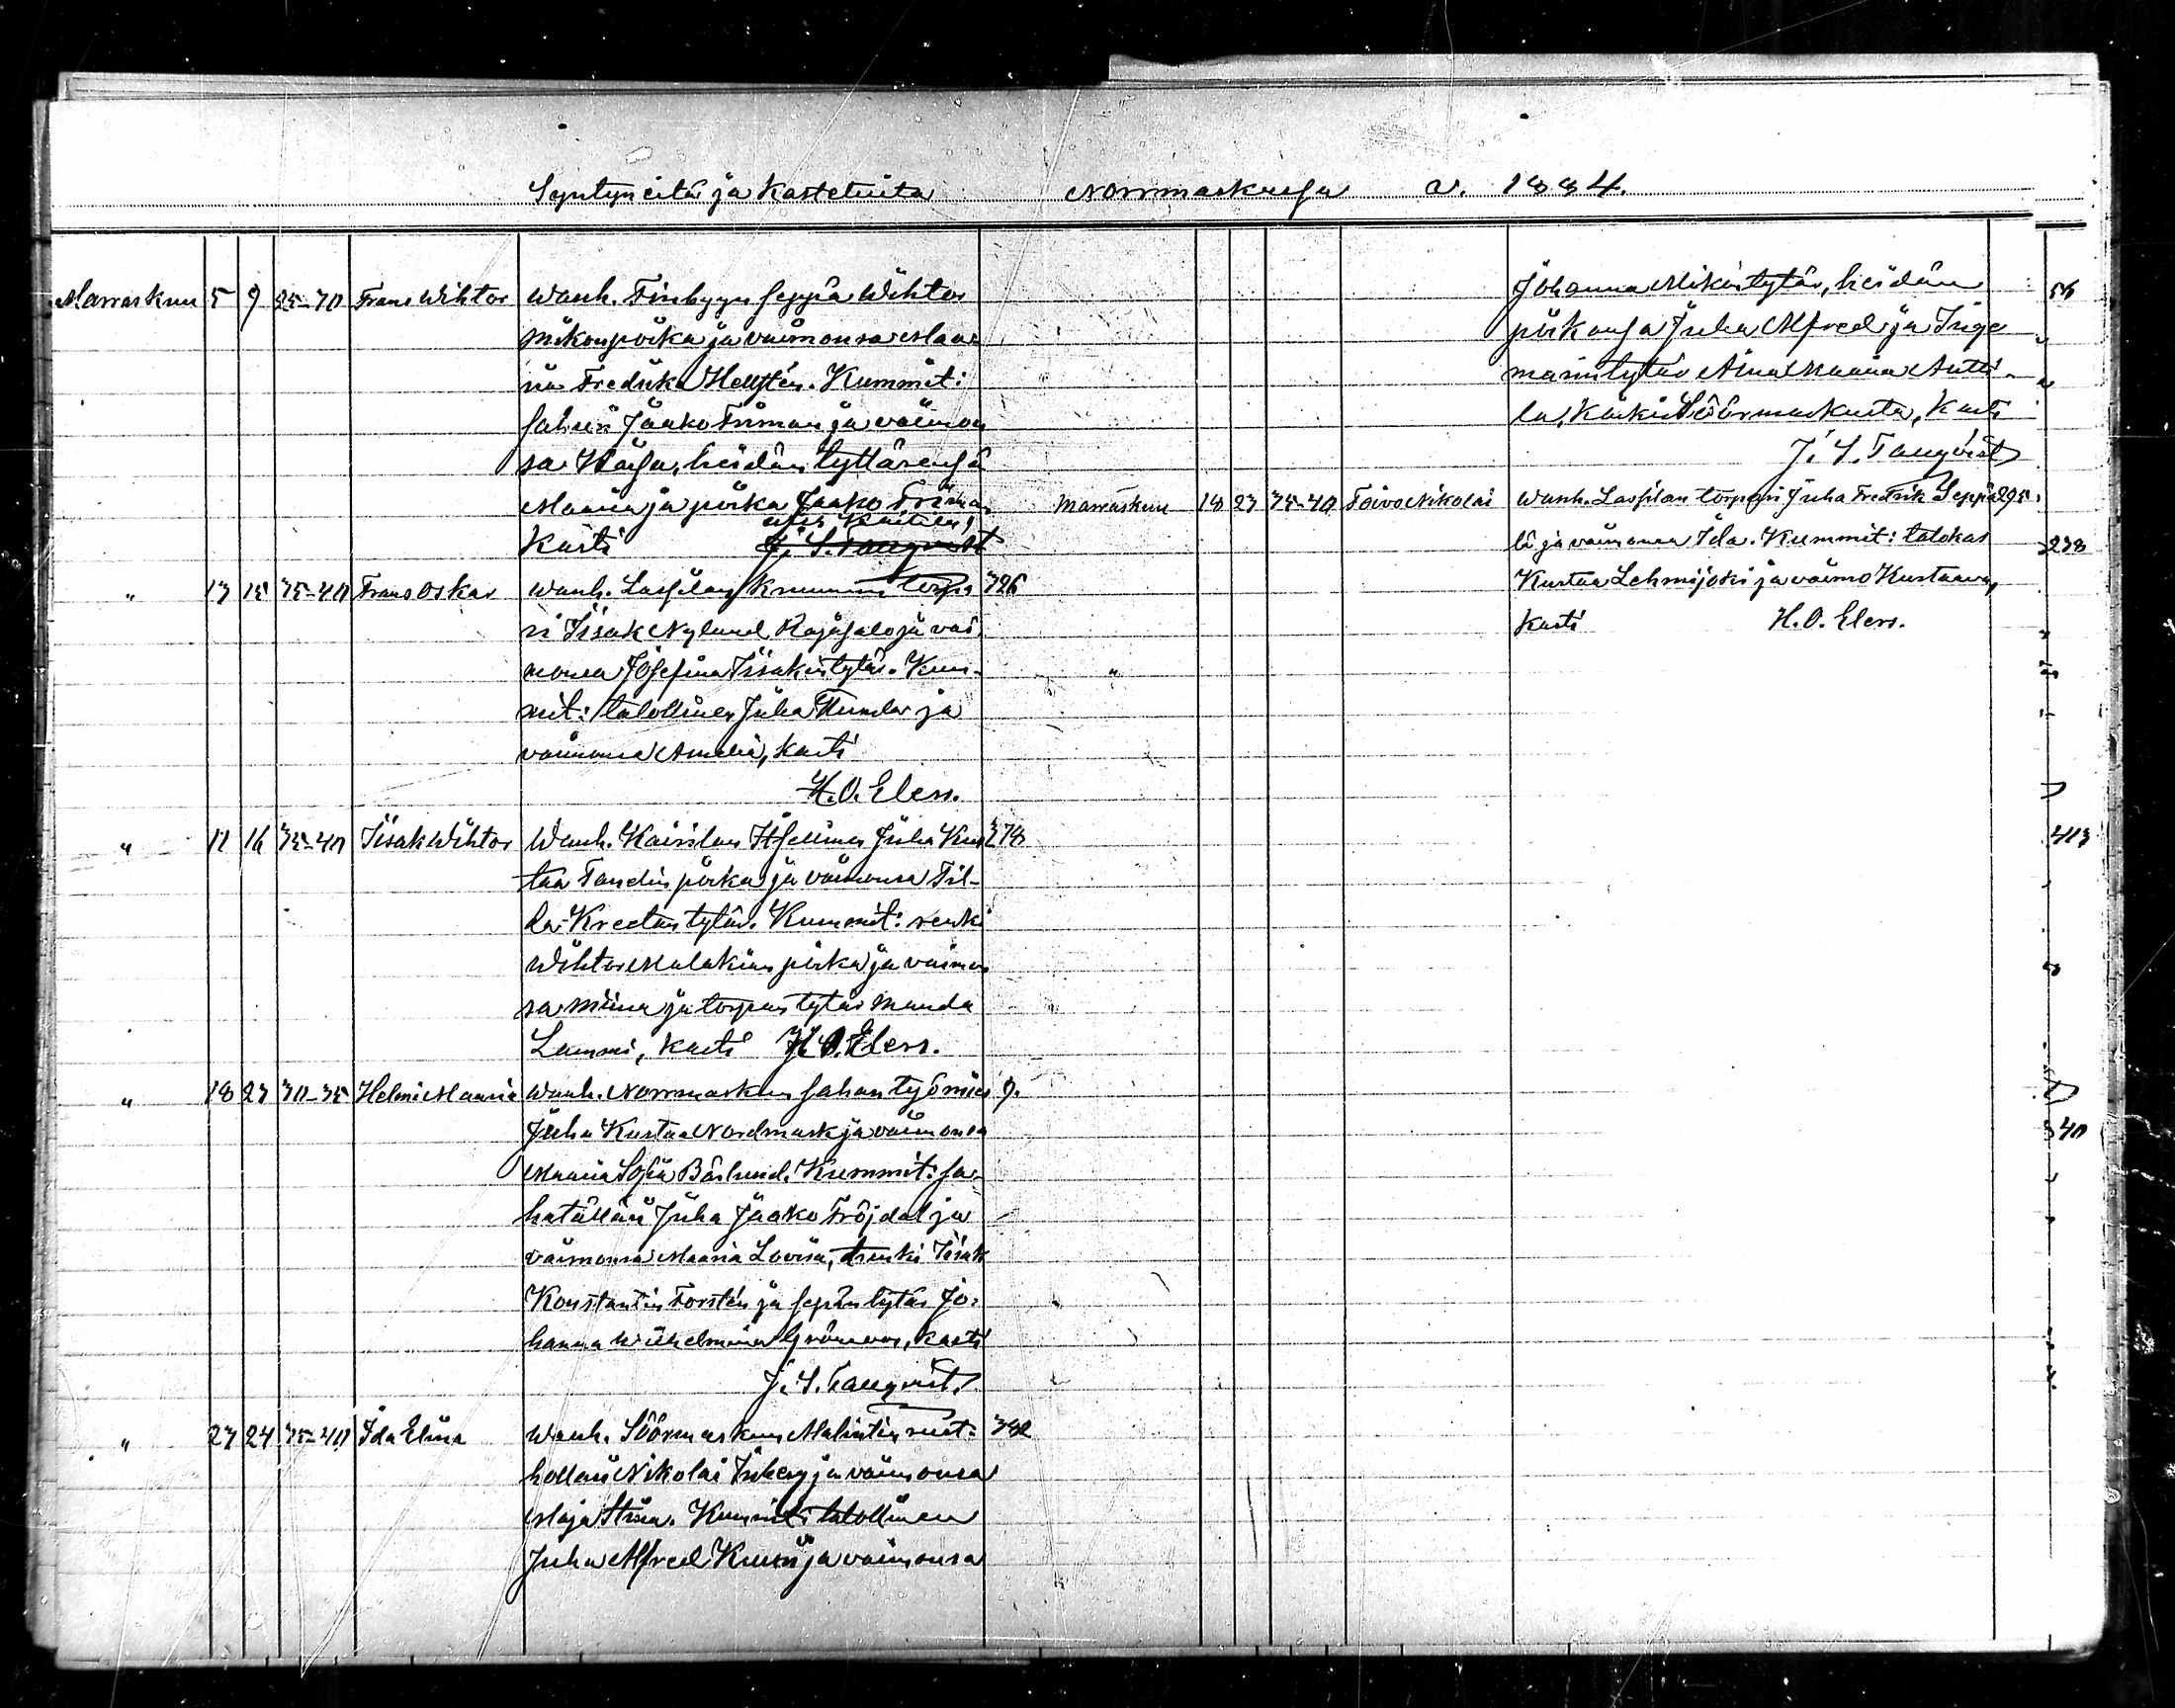 Syntyneitä ja Kastetuita Norrmarkussa v. 1884.
Marraskuu 5 9 25-30 Frans Wihtor Wanh. Finbyyn seppä Wihtor
Mikonpoika ja vaimonsa Maa-
ria Fredrika Hellstén. Kummit:
Jaako Friman ja vaimon
sa Kaisa, heidän tyttärensä
Maaria ja poika Jaako Friman
Kasti J. S. Tanqvist
" 13 15 35-40 Frans Oskar Wanh. Lassilan Kruunun torp- 326
ri Iisak Nylund Rajasalo ja vai
monsa Josefina Iisakintytär. Kum-
mit: talollinen Juha Tunder ja
vaimonsa Amalia, Kasti
H. O. Elers.
" 11 16 35-40 Iisak Wihtor Wanh. Kairilan Itsellinen Juha Kus 278
taa Fandinpoika ja vaimonsa Fil-
la Kreetantytär. Kummit: renki
Wihtor Malakiaspoika ja vaimon
sa Miina ja torparintytär Manda
Lammi, Kasti H. O. Elers.
" 18 23 30-35 Helmi Maaria Wanh. Norrmarkun sahan työmies 9.
Juha Kustaa Nordmark ja vaimonsa
Maaria Sofia Bärlund. Kummit: sa-
hatälläri Juha Jaako Fröjdal ja
vaimonsa Maaria Lovisa, renki Iisak
Konstantin Forstén ja sepäntytär Jo-
hanna Wilhelmina Grönroos, Kasti
J. S. Tanqvist.
" 23 24 35-40 Ida Elina Wanh. Söörmarkun Malintin rust- 382
hollari Nikolai Inberg ja vaimonsa
Maja Stina. Kummit: talollinen
Juha Alfred Kuusi ja vaimonsa
Johanna Mikintytär, heidän
poikansa Juha Alfred ja Inge
manintytär Aina Maaria Antti-
la, Kaikki Söörmarkusta, Kasti
J. S. Tanqvist
Marraskuu 18 23 35-40 Toivo Nikolai Wanh. Lassilan torpari Juha Fredrik Seppä 295
lä ja vaimonsa Ida. Kummit: talokas
Kustaa Lehmijoki ja vaimo Kustaava,
Kasti H. O. Elers.
"
56
238
413
340